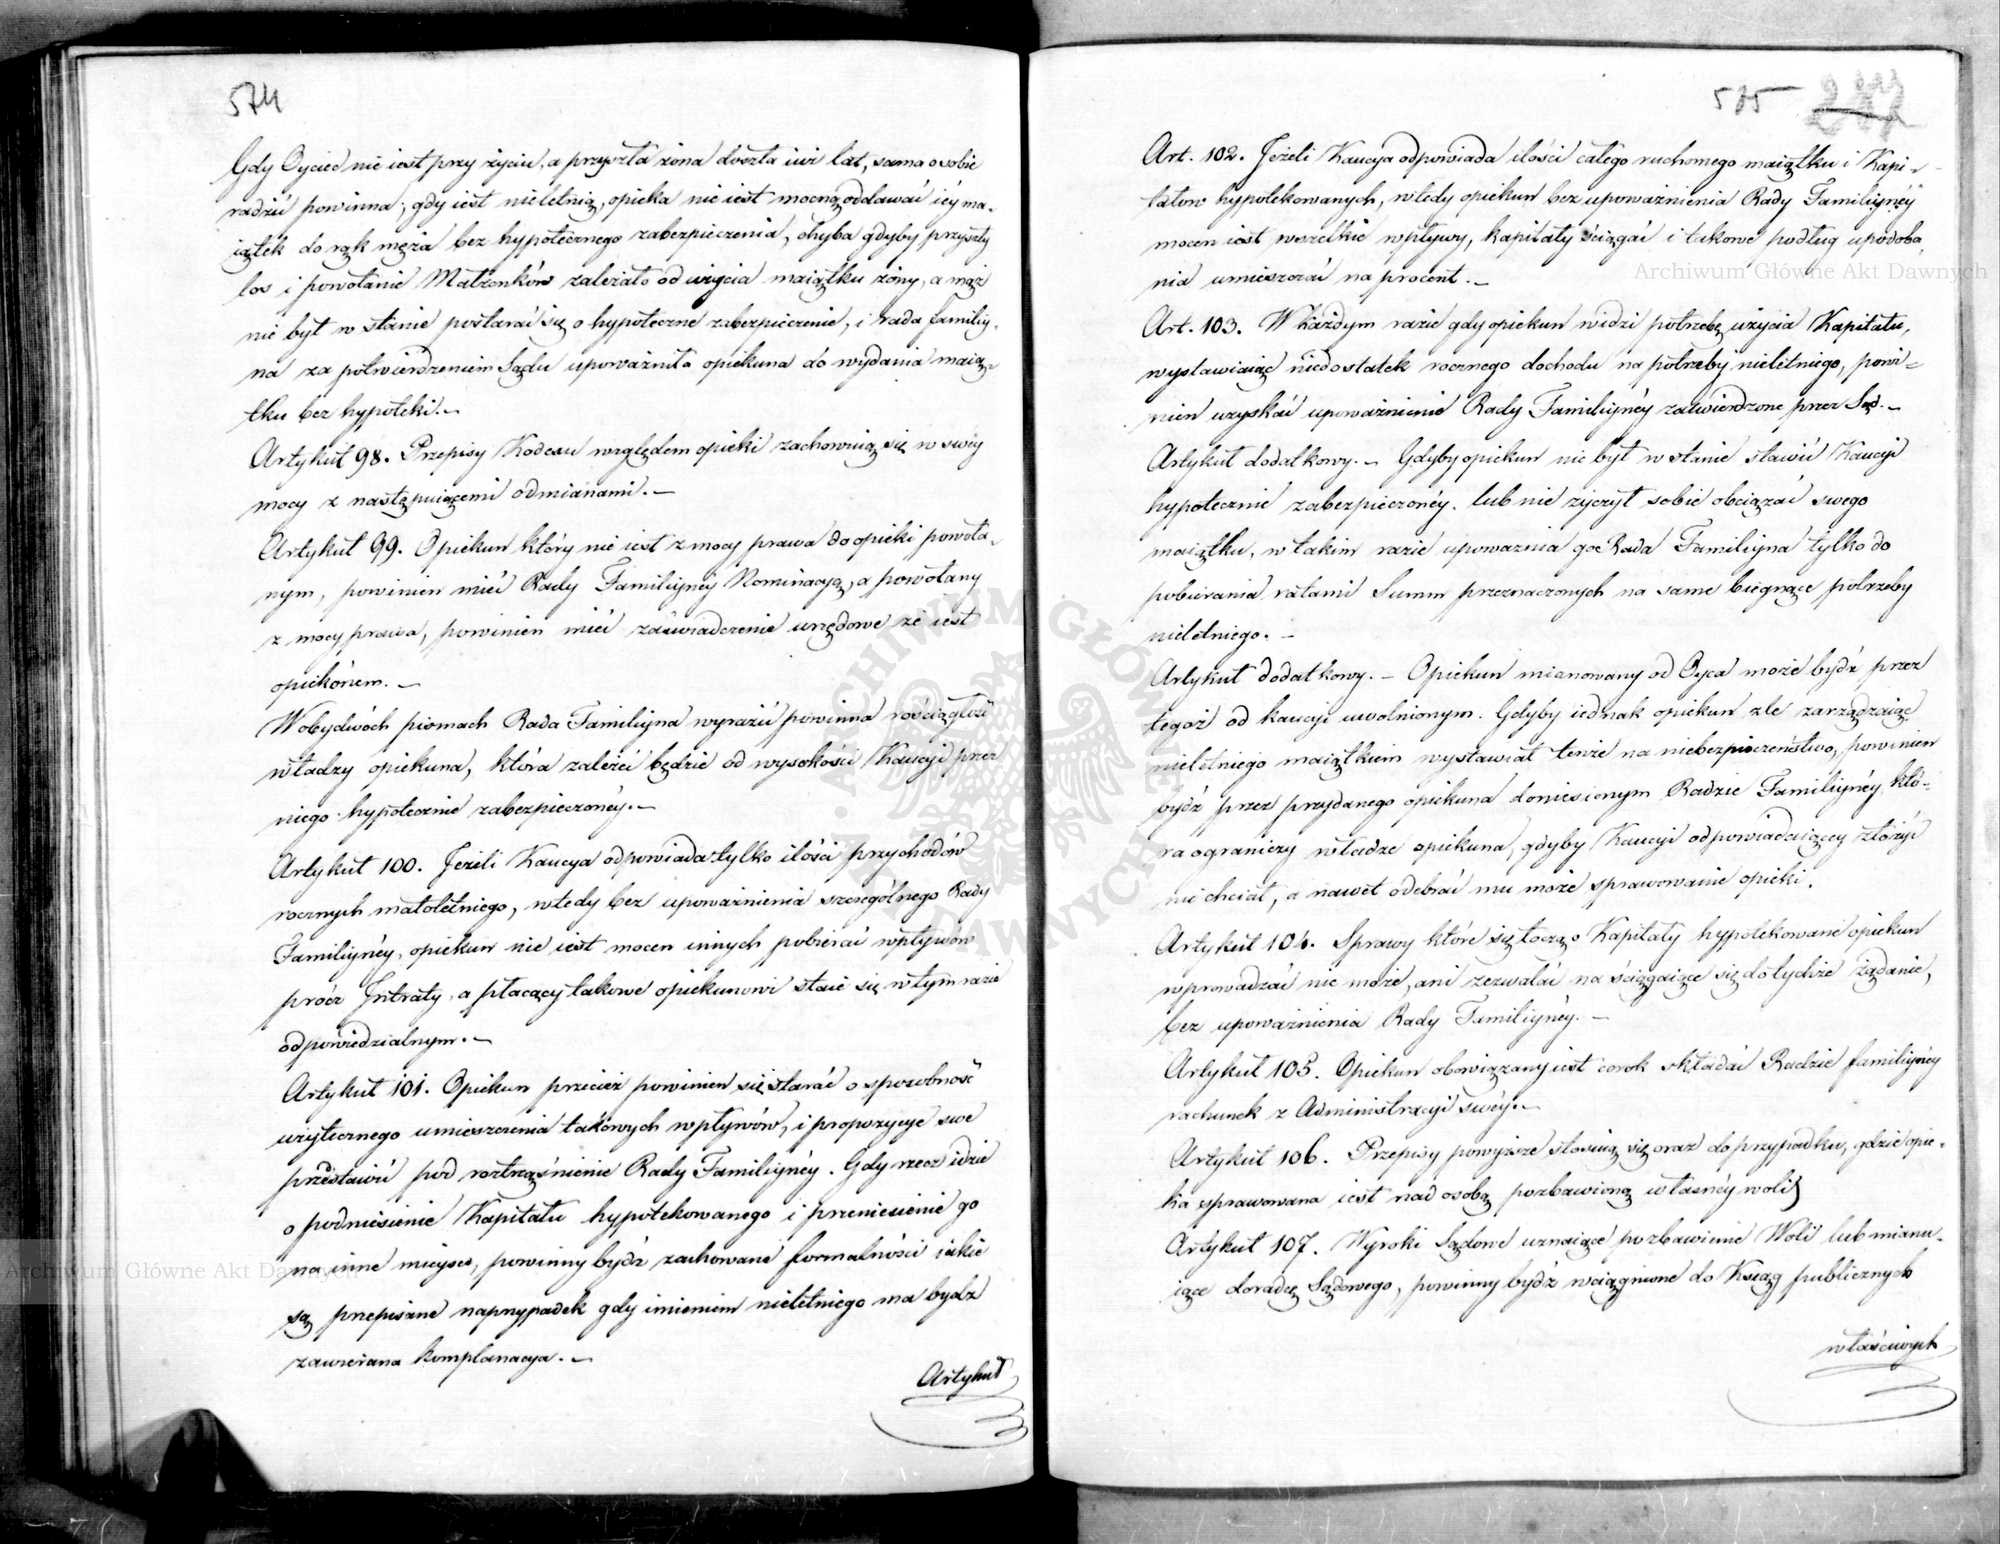 574
Gdy Oyciec nie iest przy życiu, a przyszła żona doszła iuż lat, sama o sobie
radzić powinna; gdy iest nieletnią, opieka nie iest mocną oddawać iéy ma-
iątek do rąk męża bez hypotecznego zabezpieczenia, chyba gdyby przyszły
los i powołanie Małżonków zależało od użycia maiątku żony, a mąż
nie był w stanie postarać się o hypoteczne zabezpieczenie, i rada familiy-
na za potwierdzeniem Sądu upoważniła opiekuna do wydania maią-
tku bez hypoteki.—
Artykuł 98. Przepisy Kodexu względem opieki zachowuią się w swéy
mocy z następuiącemi odmianami.—
Artykuł 99. Opiekun który nie iest z mocy prawa do opieki powoła-
nym, powinien mieć Rady Familiynéy Nominacyą, a powołany
z mocy prawa, powinien mieć zaświadczenie urzędowe że iest
opiekónem.—
W obydwóch pismach Rada Familiyna wyrazić powinna rościągłość
władzy opiekuna, która zależeć będzie od wysokości Kaucyi przez
niego hypotecznie zabezpieczonéy.—
Artykuł 100. Jeżeli Kaucya odpowiada tylko ilości przychodów
rocznych małoletniego, wtedy bez upoważnienia szczególnego Rady
Familiynéy, opiekun nie iest mocen innych pobierać wpływów
prócz Intraty, a płacący takowe opiekunowi staie się w tym razie
odpowiedzialnym.—
Artykuł 101. Opiekun przecież powinien się starać o sposobność
użytecznego umieszczenia takowych wpływów, i propozycye swe
przedstawić pod roztrząśnienie Rady Familiynéy. Gdy rzecz idzie
o podniesienie Kapitału hypotekowanego i przeniesienie go
na inne mieysce, powinny bydź zachowane formalności iakie
są przepisane na przypadek gdy imieniem nieletniego ma bydź
zawierana komplanacya.—
Artykuł
575
Art. 102. Jeżeli Kaucya odpowiada ilości całego ruchomego maiątku i Kapi-
tałow hypotekowanych, wtedy opiekun bez upoważnienia Rady Familiynéy
mocen iest wszelkie wpływy, kapitały ściągać i takowe podług upodoba
nia umieszczać na procent.—
Art. 103. W każdym razie gdy opiekun widzi potrzebę użycia Kapitału,
wystawiaiąc niedostatek rocznego dochodu na potrzeby nieletniego, powi-
nien uzyskać upoważnienie Rady Familiynéy zatwierdzone przez Sąd.—
Artykuł dodatkowy.— Gdyby opiekun nie był w stanie stawić Kaucyi
hypotecznie zabezpieczonéy, lub nie życzył sobie obciążać swego
maiątku, w takim razie upoważnia go Rada Familiyna tylko do
pobierania ratami Summ przeznaczonych na same biegnące potrzeby
nieletniego.—
Artykuł dodatkowy.— Opiekun mianowany od Oyca może bydź przez
tegoż od kaucyi uwolnionym. Gdyby iednak opiekun źle zarządzaiąc
nieletniego maiątkiem wystawiał tenże na niebezpieczeństwo, powinien
bydź przez przydanego opiekuna doniesionym Radzie Familiynéy, któ-
ra ograniczy władze opiekuna, gdyby Kaucyi odpowiadaiącey złożyć
nie chciał, a nawet odebrać mu może sprawowanie opieki.
Artykuł 104. Sprawy które się toczą o Kapitały hypotekowane opiekun
wprowadzać nie może, ani zezwalać na ściągaiące się do tychże żądanie,
bez upoważnienia Rady Familiynéy.—
Artykuł 105. Opiekun obowiązany iest corok składać Radzie familiynéy
rachunek z Administracyi swéy.—
Artykuł 106. Przepisy powyższe stosuią się oraz do przypadku, gdzie opie-
ka sprawowana iest nad osobą pozbawioną własnéy woli
Artykuł 107. Wyroki Sądowe uznaiące pozbawienie Woli lub mianu-
iące doradcę Sądowego, powinny bydź wciągnione do Ksiąg publicznych
właściwych
Archiwum Główne Akt Dawnych
Archiwum Główne Akt Dawnych
ARCHIWUM GŁÓWNE AKT DAWNYCH